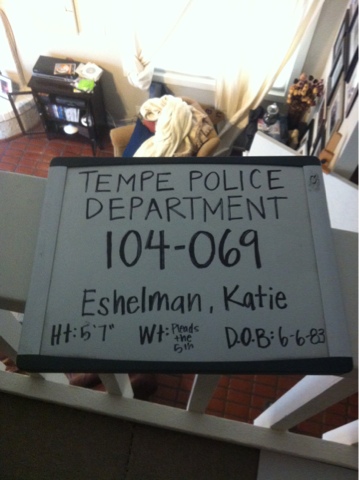 TEMPE POLICE
DEPARTMENT
104-069
Eshelman, Katie
Ht: 5'7" Wt: Pleads the 5th D.O.B: 6-6-83